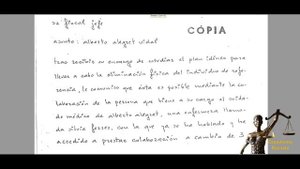 de fiscal jefe
CÓPIA
asunto: alberto alegret vidal
tras recibir su encargo de estudiar el plan idóneo para
llevar a cabo la eliminación física del individuo de refe-
rencia, le comunico que ésta es posible mediante la co-
laboración de la persona que tiene a su cargo el cuida-
do médico de alberto alegret, una enfermera llama-
da silvia ferrer, con la que ya se ha hablado y ha
accedido a prestar colaboración a cambio de 3